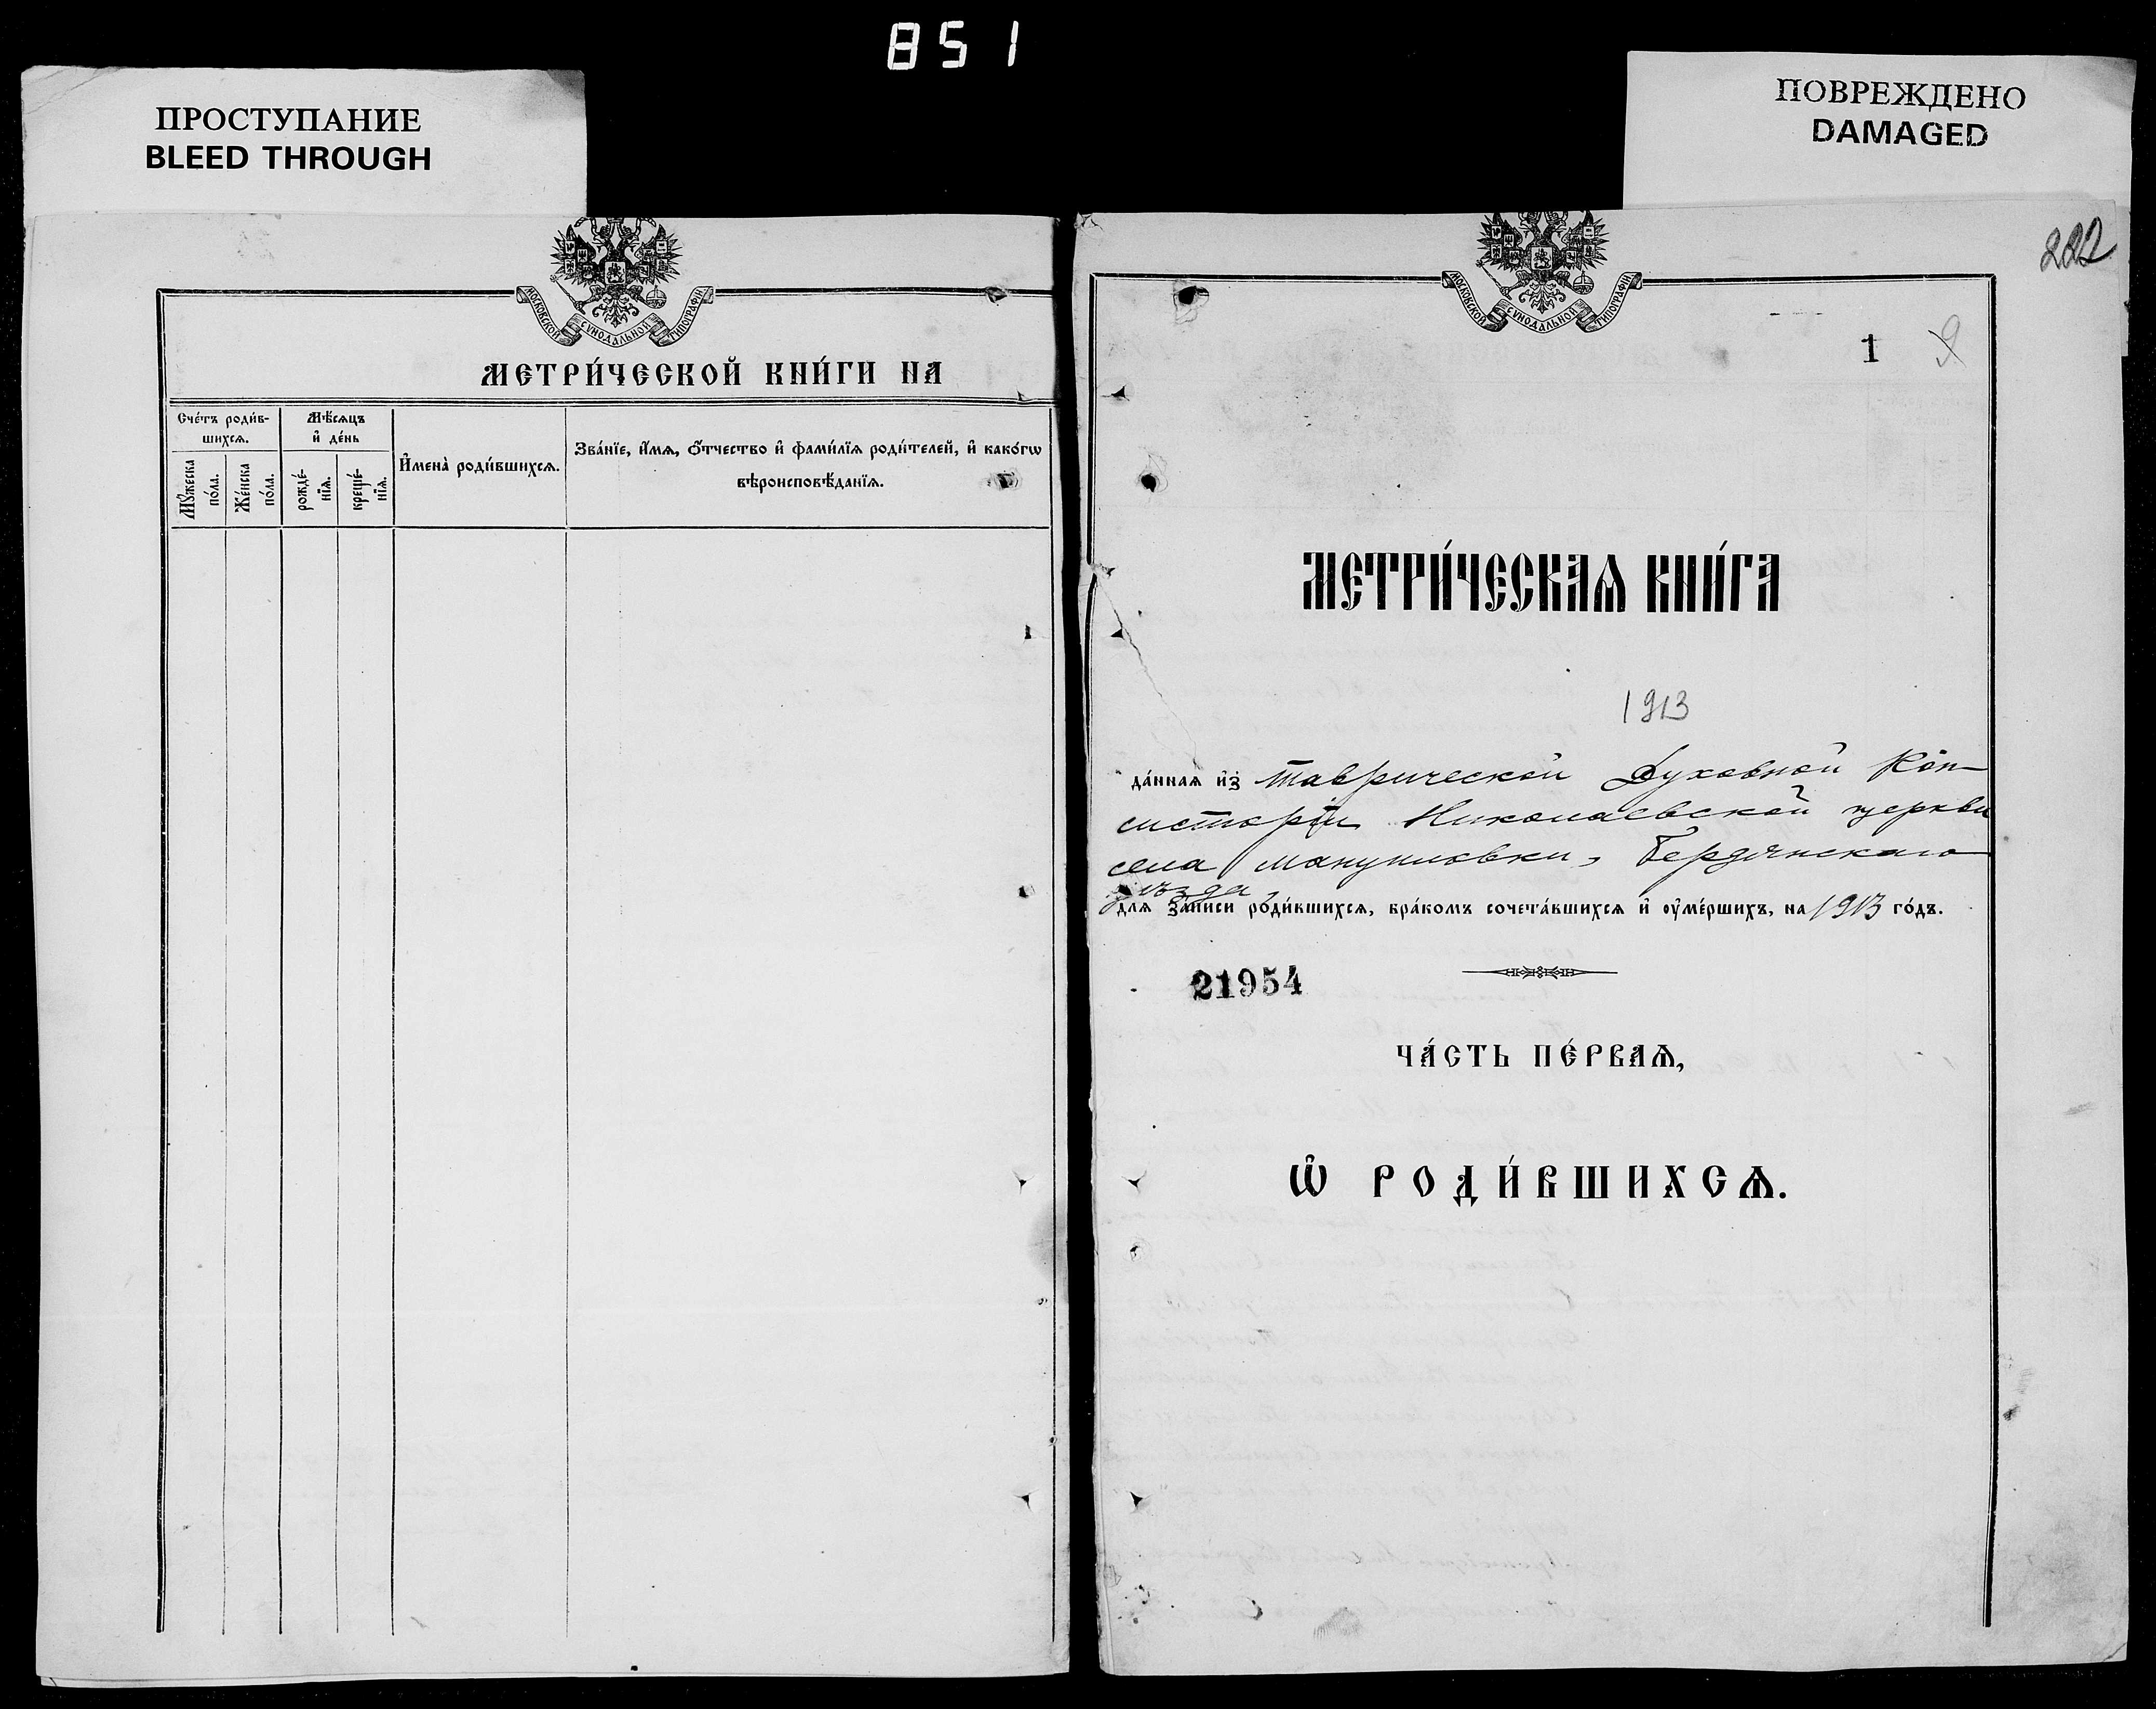 851
ПРОСТУПАНИЕ
BLEED THROUGH
ПОВРЕЖДЕНО
DAMAGED
МОСКОВСКОЙ СѴНОДАЛЬНОЙ ТИПОГРАФІИ
МЕТРИ́ЧЕСКОЙ КНИ́ГИ НА
Сче́тъ роди́в-
шихсѧ.
Мѣ́сѧцъ
и҆ де́нь
И҆мена̀ роди́вшихсѧ.
Зва́нїе, и҆́мѧ, ѻ҆́тчество и҆ фами́лїѧ роди́телей, и҆ како́гѡ
вѣроисповѣ́данїѧ.
Мꙋ́жеска
по́ла.
Же́нска
по́ла.
рожде́-
нїѧ.
креще́-
нїѧ.
222
МОСКОВСКОЙ СѴНОДАЛЬНОЙ ТИПОГРАФІИ
1 9
МЕТРИ́ЧЕСКАѦ КНИ́ГА
1913
да́ннаѧ и҆з̾ Таврической Духовной Кон-
систоріи Николаевской церкви
села Мануиловки, Бердянскаго
уѣзда
длѧ за́писи роди́вшихсѧ, бра́комъ сочета́вшихсѧ и҆ ᲂу҆ме́ршихъ, на 1913 го́дъ.
21954
ЧА́СТЬ ПЕ́РВАѦ,
Ѡ҆ РОДИ́ВШИХСѦ.